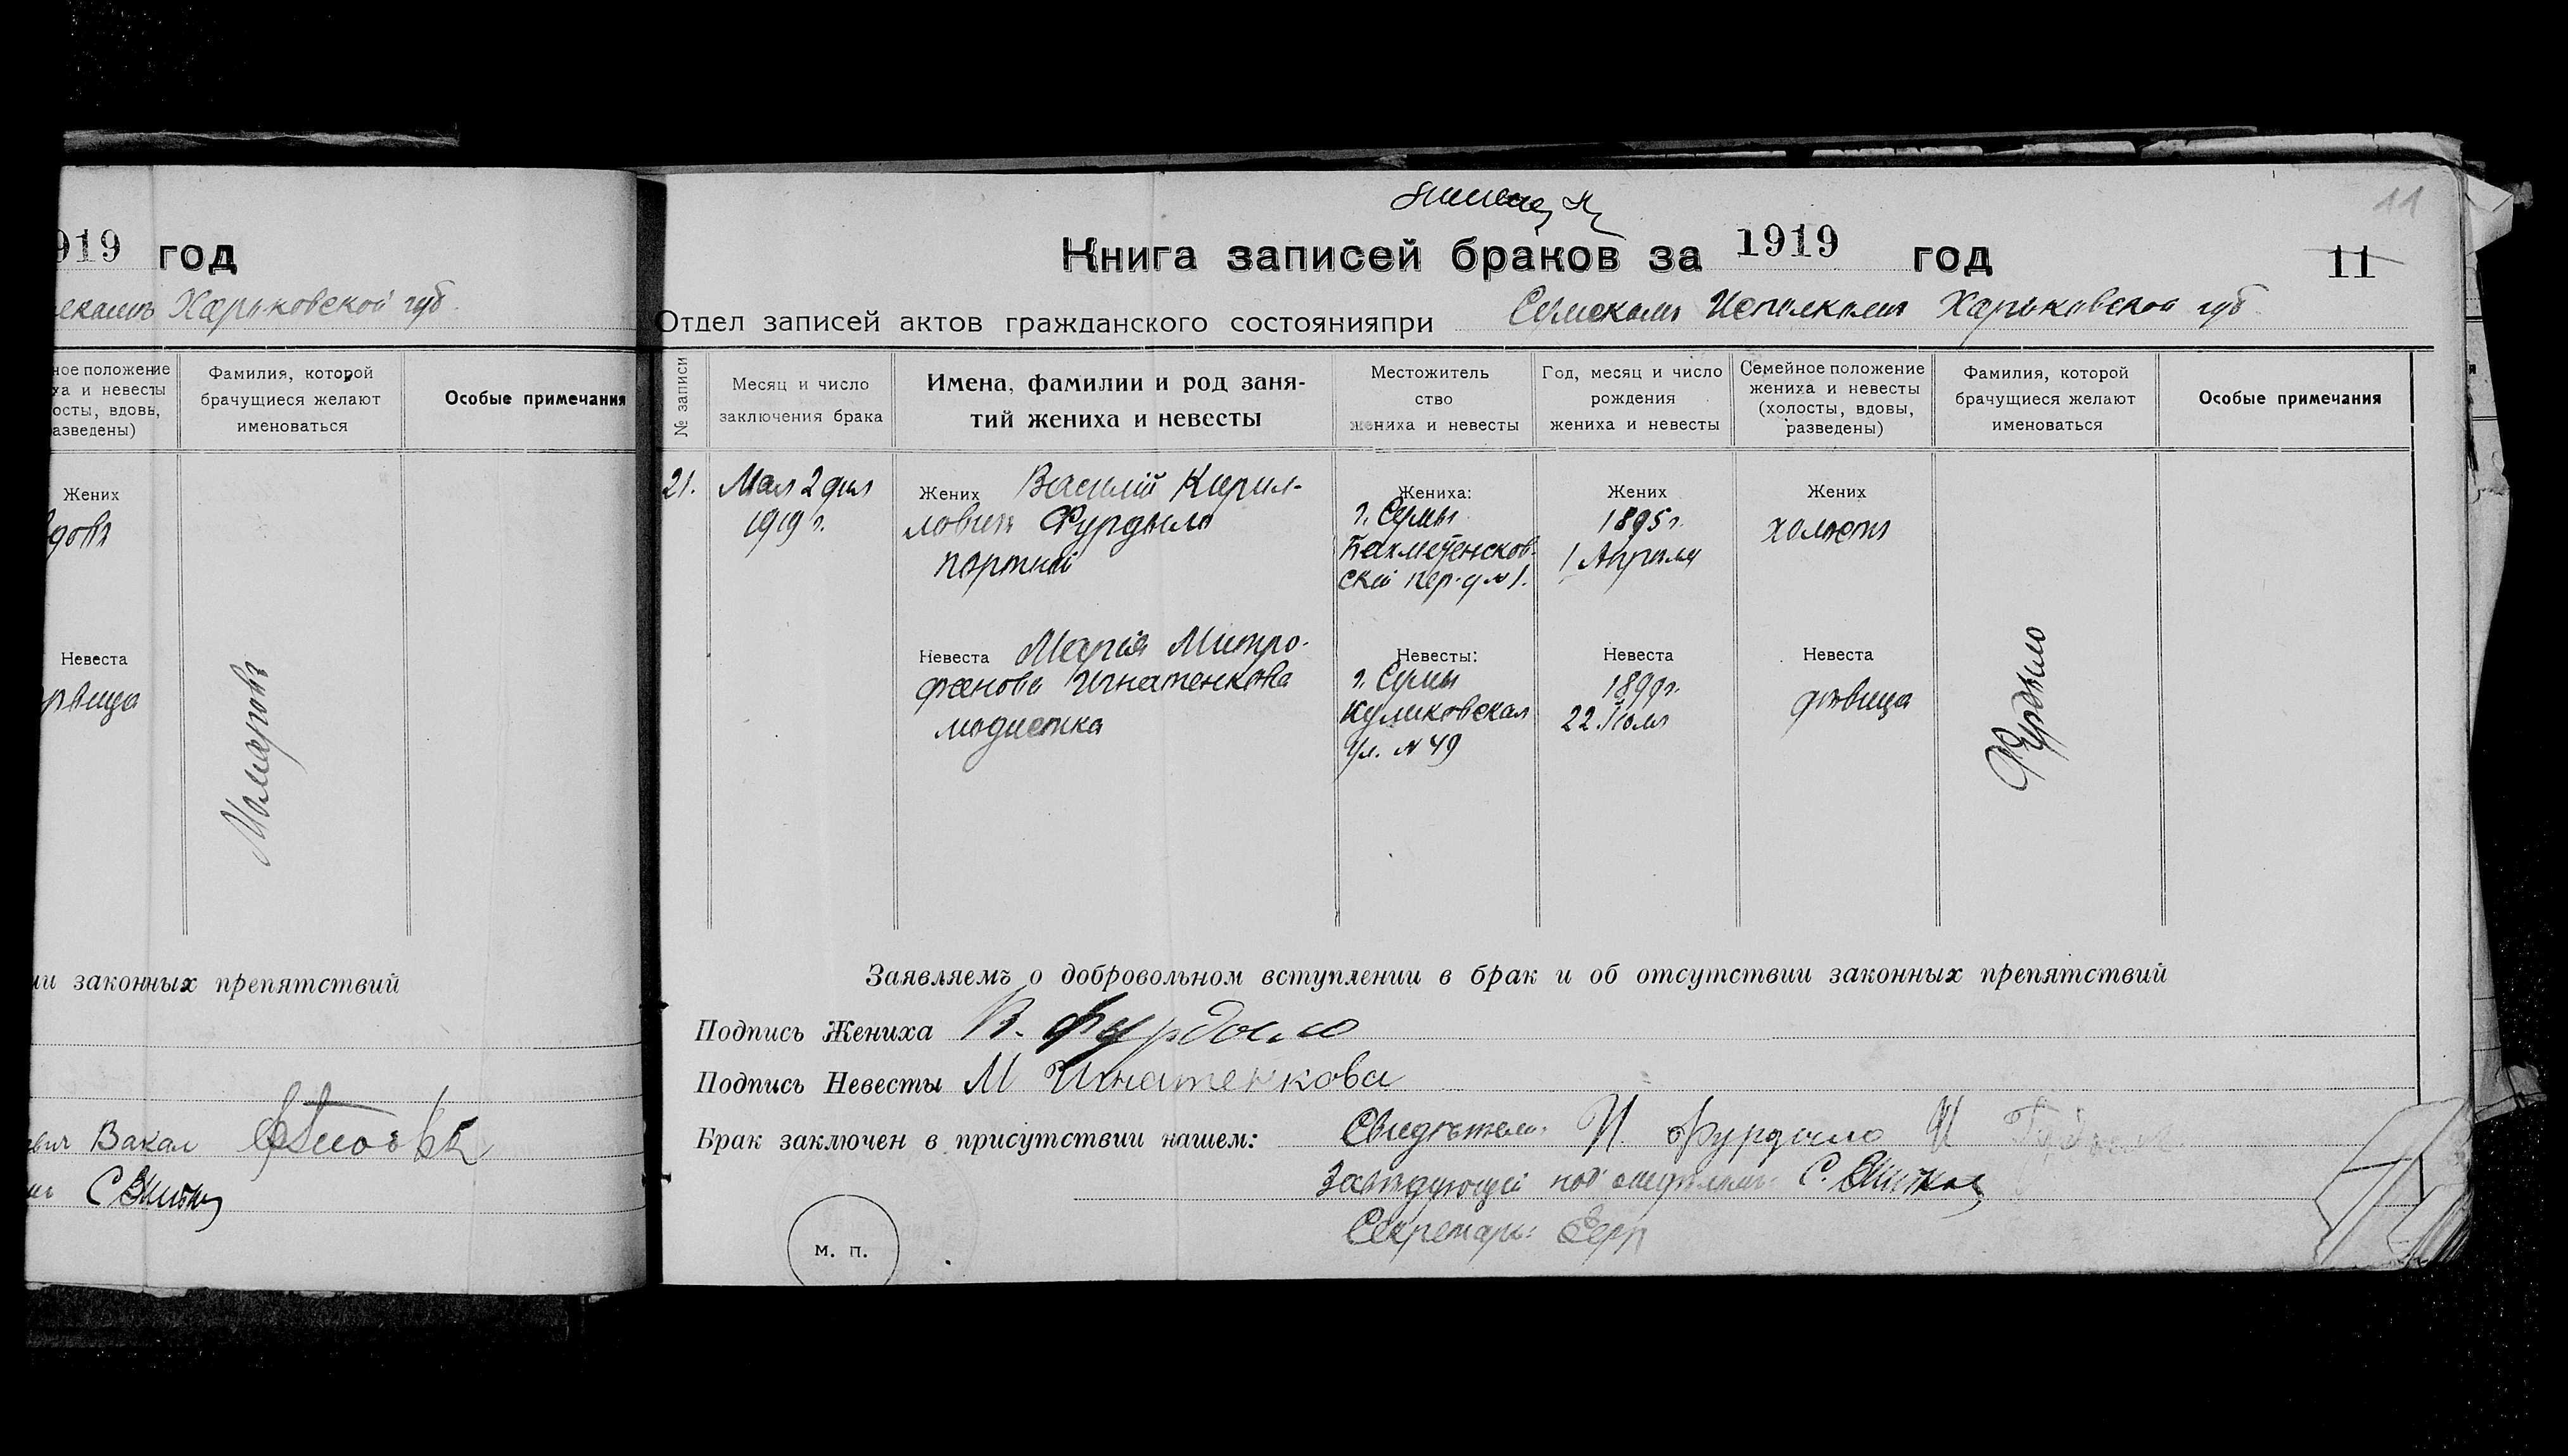 919 год
Харьковской губ.
ное положение
ха и невесты
осты, вдовы,
азведены)
Фамилия, которой
брачущиеся желают
именоваться
Особые примечания
Жених
Невеста
ии законных препятствий
Вакал
11
Книга записей браков за 1919 год
11
Отдел записей актов гражданского состоянияпри Сумскомъ Исполкомъ Харьковской губ.
№ записи
Месяц и число
заключения брака
Имена, фамилии и род заня-
тий жениха и невесты
Местожитель
ство
жениха и невесты
Год, месяц и число
рождения
жениха и невесты
Семейное положение
жениха и невесты
(холосты, вдовы,
разведены)
Фамилия, которой
брачущиеся желают
именоваться
Особые примечания
21.
Мая 2 дня
1919 г.
Жених Василій Кирил-
ловичъ Фурдыло
портной
Жениха:
г. Сумы
пер. д № 1.
Жених
1895 г.
1 Апреля
Жених
холостъ
Невеста Марія Митро-
фанова Игнатенкова
модистка
Невесты:
г. Сумы
Куликовская
ул. № 49
Невеста
1899 г.
22
Невеста
дѣвица
Фурдыло
Заявляемъ о добровольном вступлении в брак и об отсутствии законных препятствий
Подпись Жениха В. Фурдыло
Подпись Невесты М Игнатенкова
Брак заключен в присутствии нашем: Свидѣтели: И Фурдыло И
Завѣдующій под отдѣломъ С.
Секретарь:
м. п.